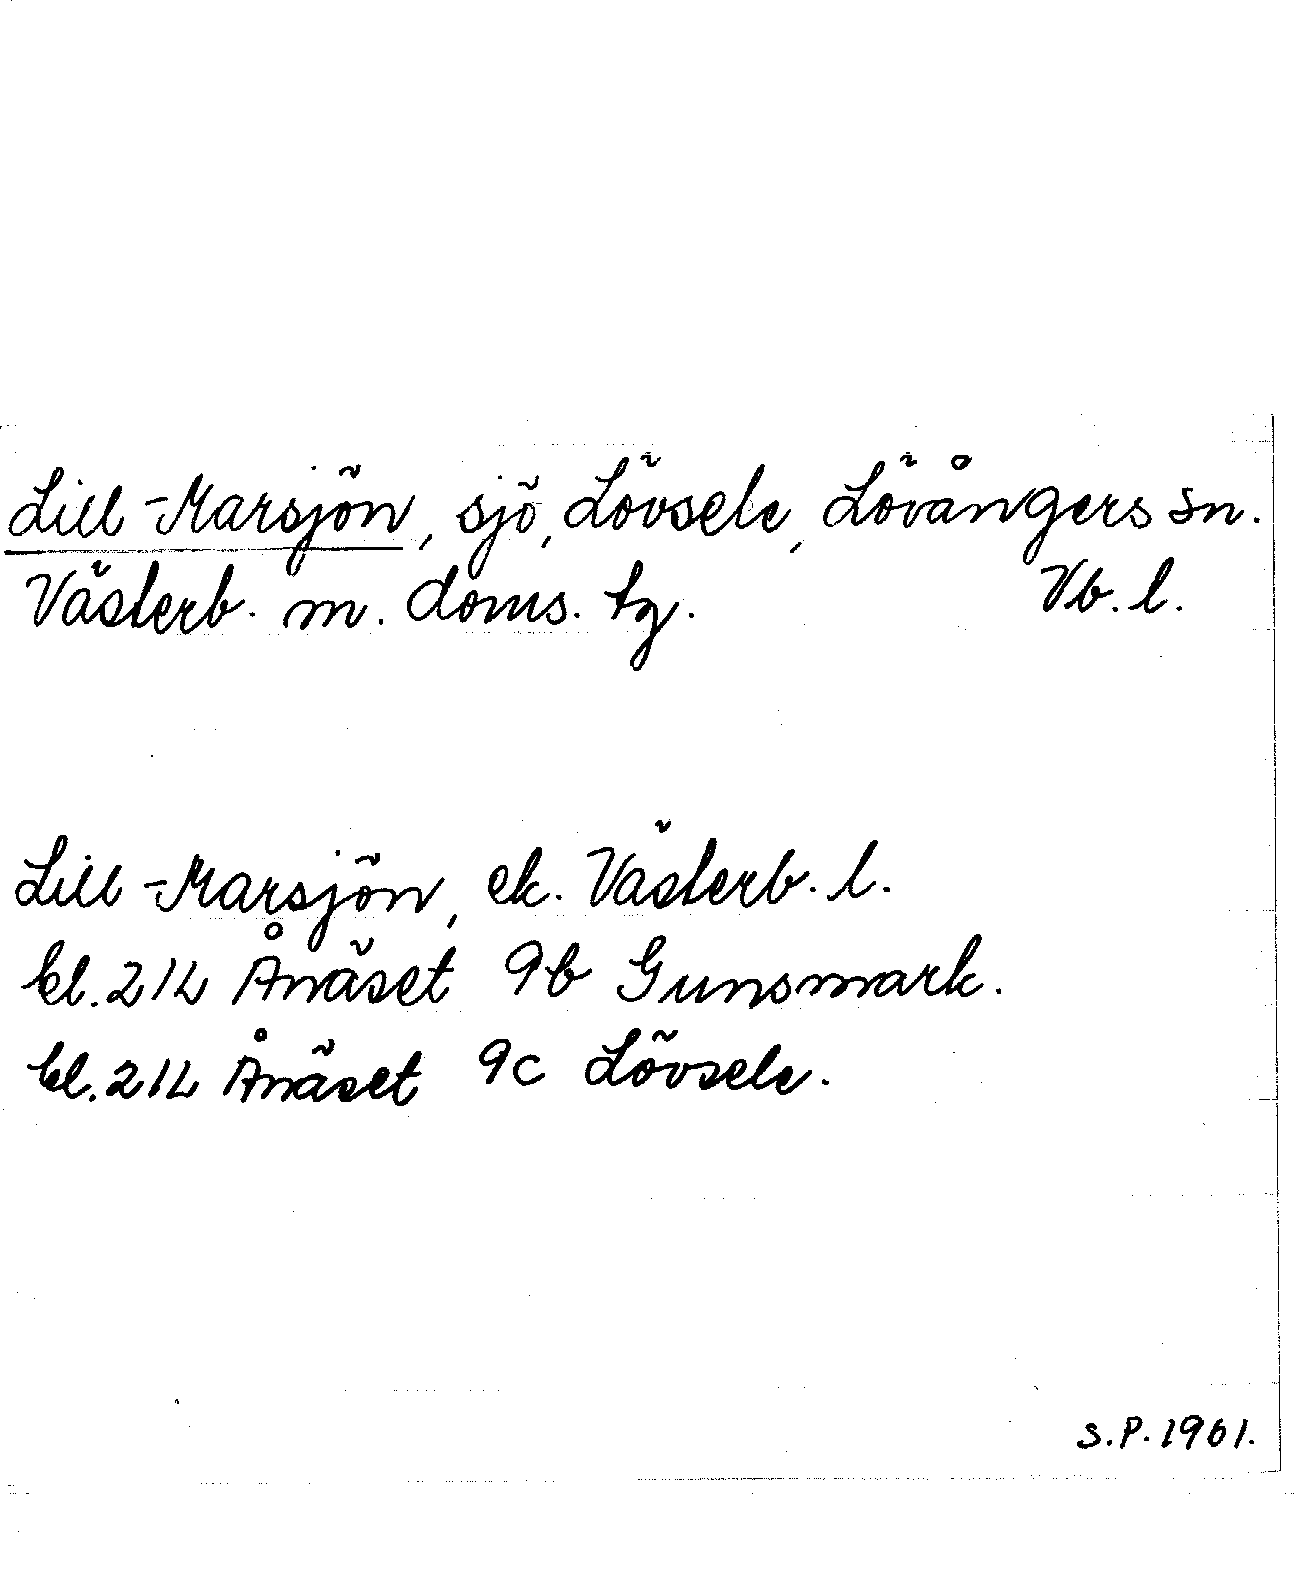 Lill-Marsjön, sjö, Lövsele, Lövångers sn.
Västerb. m. doms. tg. Vb. l.
Lill-Marsjön, ek. Västerb. l.
bl. 21L Ånäset 9b Gunsmark.
bl. 21L Ånäset 9c Lövsele.
S.P. 1961.